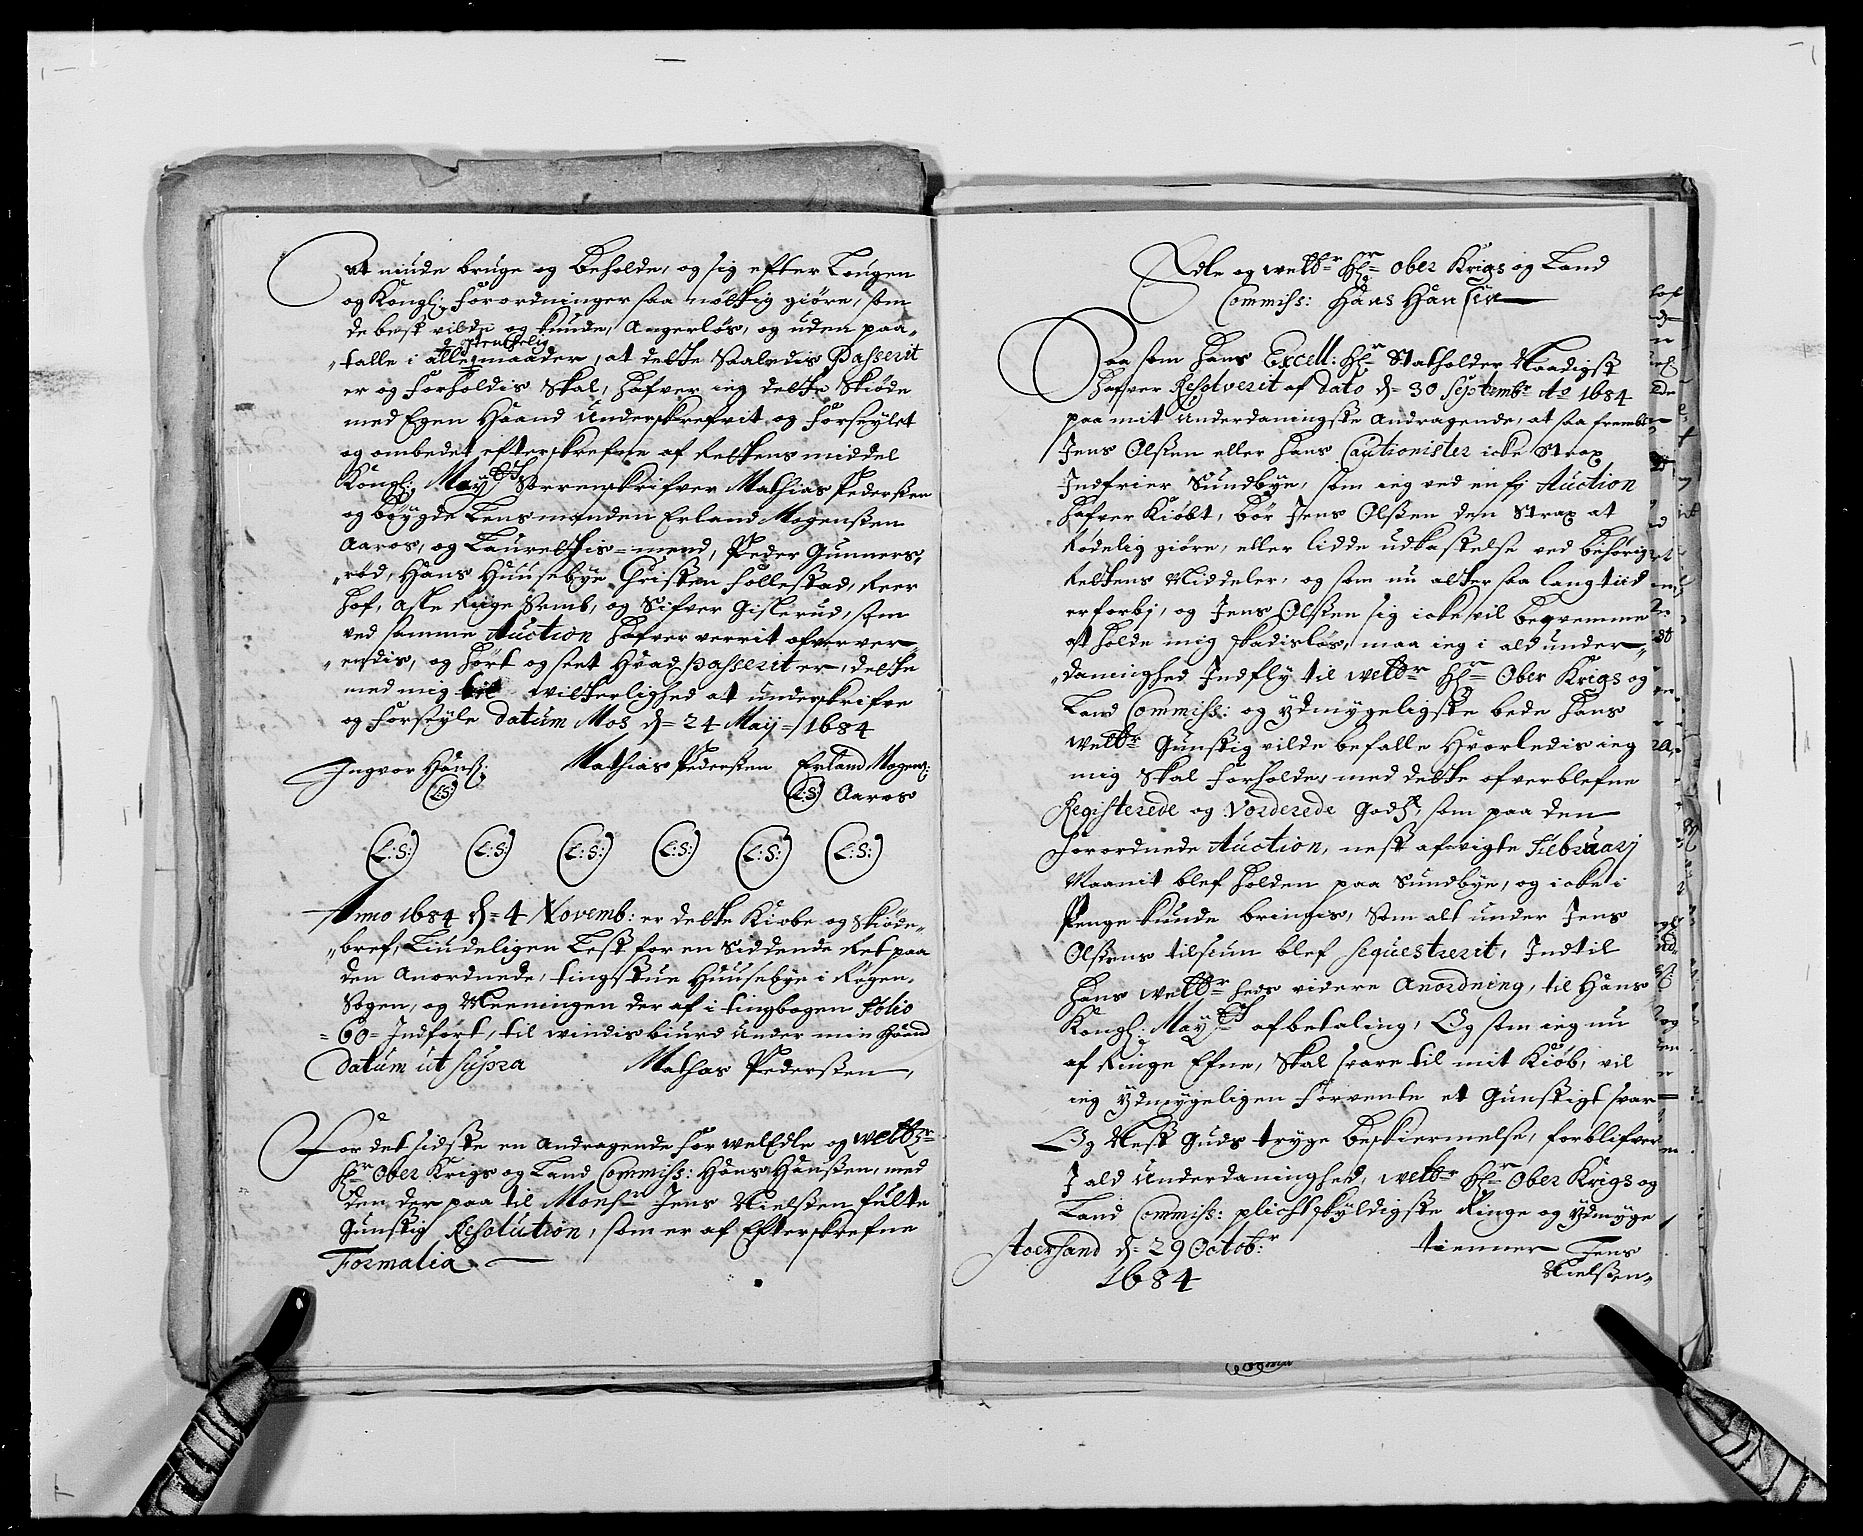 at niude bruge og beholde, og sig efter Lougen
og Kongl: Forordninger saa nøttig giøre, som
de best vilde og kunde, Angerløs, og uden paa-
talle i alle maader, at dette Saaledis Passerit
er og forholdis skal, hafver ieg dette Skiøde
med Egen Haand Underskrefvit og Forseylet
og ombedet efterskrefne af Rettens middel
Kongl: May:tts Sorrenskrifver Mathias Pederssen
og böygde Lensmanden Erland Mogenssen
Aaros, og Laurettis-mend, Peder Gunners-
rød, Hans Huusebye Christen Follestad, Reer
Hof, Aske Ruge Semb, og Sifver Giskerud, som
ved samme Auction hafver verrit ofverver-
endis, og hört og seet Hvad passerit er, dette
med mig til vitterlighed at underskrifve
og Forseyle Datum Mos d= 24 Maij= 1684
Ingvor Hanss: Mathias Pederssen Erland Mogens:
(L:S) (L:S) Aaros
(L:S:) (L:S) (L:S:) (L:S:) (L:S:) (L:S:)
Anno 1684 d= 4 Novemb: er dette Kiøbe og Skiøde-
bref, Liudeligen Lest for en Siddende Ret paa
den Anordnede, tingstue Huusebye i Røgen-
Sogen, og Meeningen der af i tingbogen Folio
=60= Indført, til windisbiurd under min Haand
Datum ut supra Mathas Pederssen,
For det sidste en Andragende for welEdle og welb:r
H:r Ober Krigs og Land Commiss: Hans Hanssen, med
den der paa til Mons:r Jens Nielssen fulte
Gunstig Resolution, som er af Efterskrefne
Formalia
Edle og welb:r H:r Ober Krigs og Land
Commiss: Hans Hansen
Saa som hans Excell: H:r Statholder Naadigst
hafver Resolverit af dato d= 30 Septemb:r Ao 1684
paa mit Underdaningste Andragende, at saa fremt
Jens Olssen eller hans Cautionister icke Strax
Indfrier Sundbye, som ieg ved en fj Auction
hafver Kiøbt, bör Jens Olssen den Strax at
Rødelig giøre, eller lidde udkastelse ved behörig
Rettens Middeler, og som nu alter saa lang tiid
er forbj, og Jens Olssen sig icke vil beqvemme
at holde mig skadisløs, maa ieg i ald under-
daninghed Indfly til welb:r H:r Ober Krigs og
Land Commiss: og ydmygeligste bede hans
welb:r Gunstig vilde befalle Hvorledis ieg
mig skal forholde, med dette ofverblefne
Registerede og Vorderede Gods, som paa den
Forordnede Auction, nest afvigte Februarj
Maanit blef holden paa Sundbye, og icke i
Penge kunde bringis, Som alt under Jens
Olssens tilsiun blef sequestrerit, Indtil
hans welb:r heds videre Anordning, til Hans
Kongl: May:tts afbetaling, Og som ieg nu
af Ringe Efne, skal svare til mit Kiøb, vil
ieg ydmygeligen forvente et Gunstigt svar
Og Nest Guds tryge beskiermelse, forblifver
I ald Underdaninghed, welb:r H:r Ober Krigs og
Land Commiss: plichtskyldigste Ringe og ydmyge
d= 29 Octob:r tienner Jens
1684 Nielssen